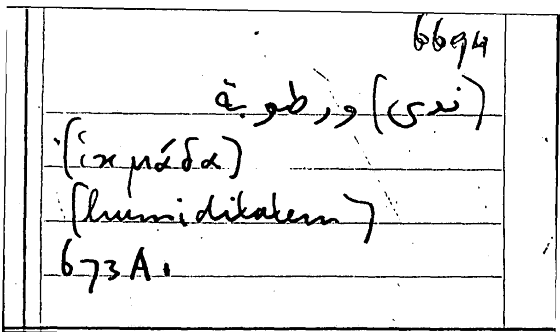 6694
(ندى) ورطوبة
(ἰκμάδα)
(humiditatem)
673A.